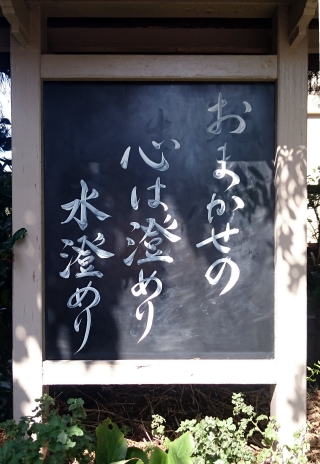 おまかせの
心は澄めり
水澄めり